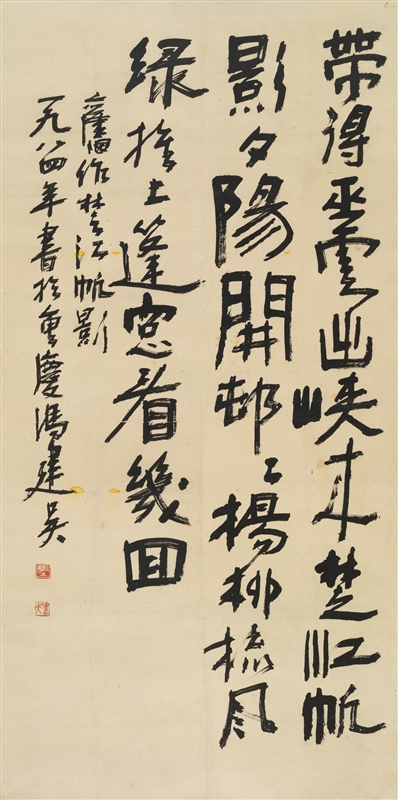 帶得巫雲出峽来楚江帆
影夕陽開邨〻楊柳梳风
緑推上篷窓看幾回
舊作楚江帆影
一九八四年書於重慶馮建吴